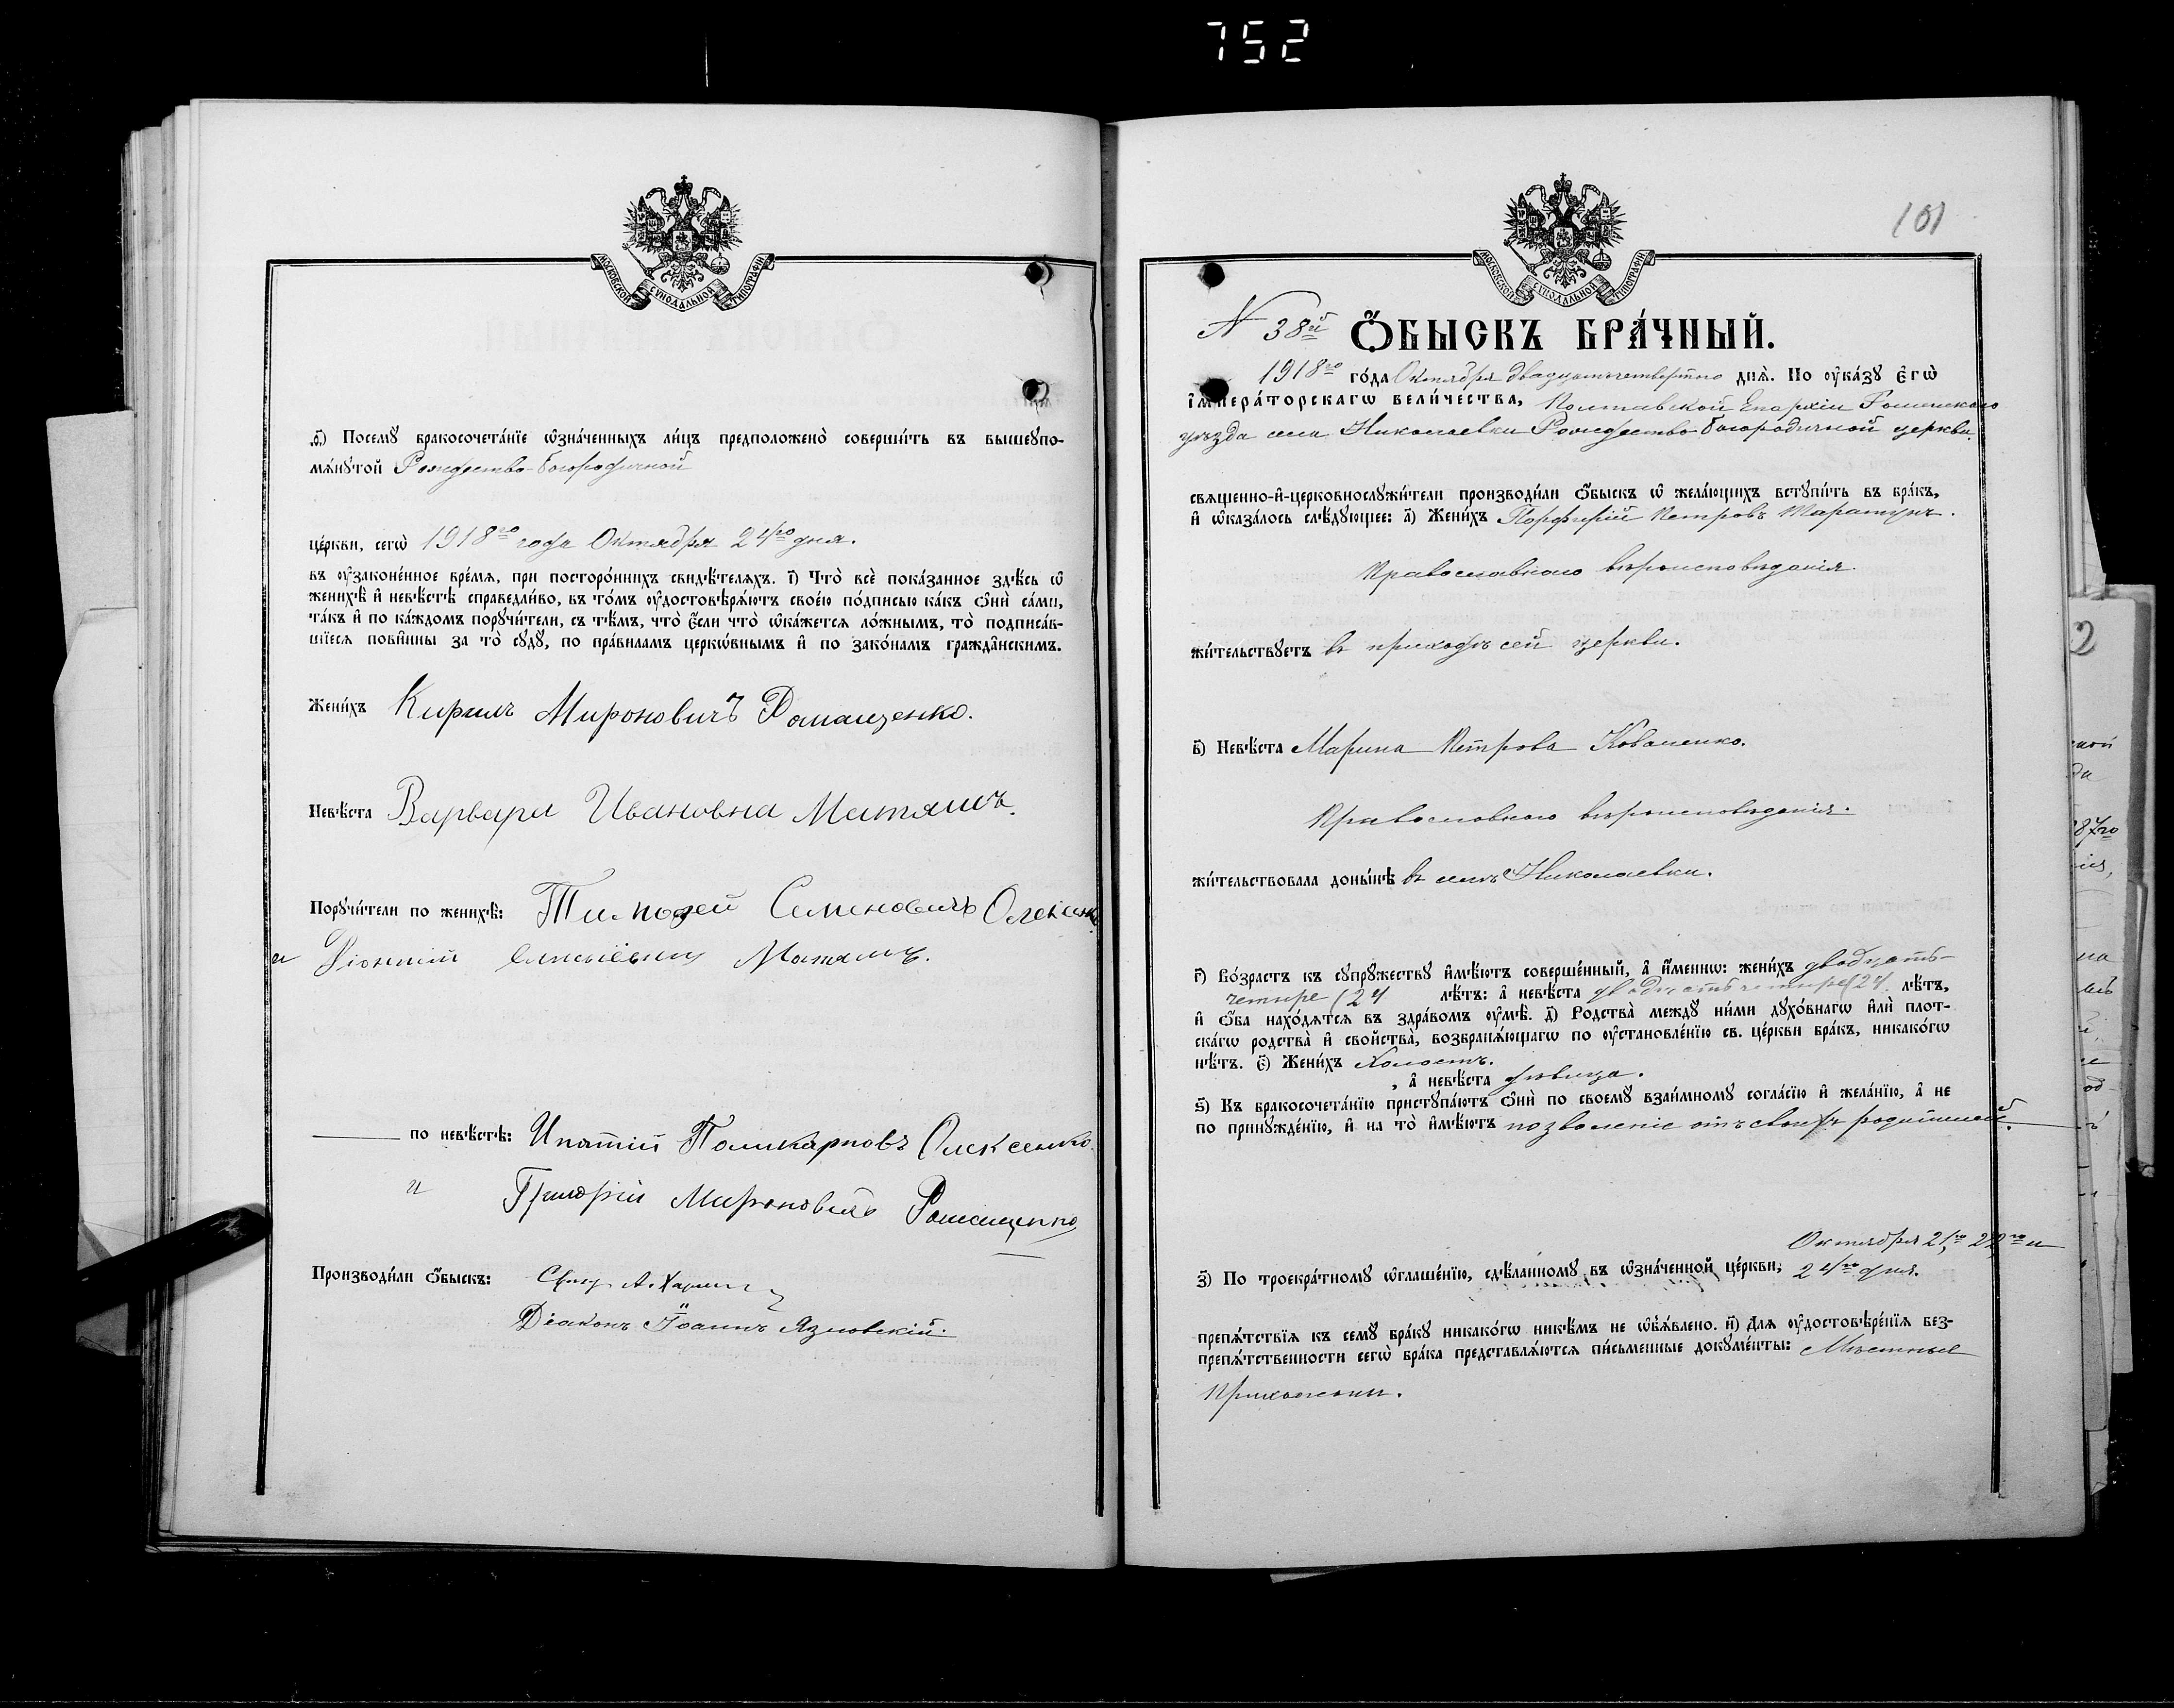 752
МОСКОВСКОЙ СѴНОДАЛЬНОЙ ТИПОГРАФІИ
ѳ҃) Посемꙋ бракосочета́нїе ѡ҆зна́ченныхъ ли́цъ предположено̀ соверши́ть въ вышеꙋпо-
мѧ́нꙋтой Рождество-Богородичной
це́ркви, сегѡ̀ 1918го года Октября 24го дня.
въ ᲂу҆законе́нное вре́мѧ, при посторо́ннихъ свидѣ́телѧхъ. і҃) Что̀ всѐ пока́занное здѣ́сь ѡ҆
женихѣ̀ и҆ невѣ́стѣ справедли́во, въ то́мъ ᲂу҆достовѣрѧ́ютъ свое́ю по́дписью ка́къ ѻ҆нѝ са́ми,
та́къ и҆ по ка́ждомъ порꙋчи́тели, съ тѣ́мъ, что̀ є҆́сли что̀ ѡ҆ка́жетсѧ ло́жнымъ, то̀ подписа́в-
шїесѧ пови́нны за то̀ сꙋдꙋ̀, по пра́виламъ церкѡ́внымъ и҆ по зако́намъ гражда́нскимъ.
Жени́хъ Кирилъ Мироновичъ Ромащенко.
Невѣ́ста Варвара Ивановна Матяшъ.
Порꙋчи́тели по женихѣ̀: Тимофей Семеновичъ Олексенко
и Діонисій Матяшъ.
по невѣ́стѣ: Ипатій Поликарповъ Олексенко
и Григорій Мироновичъ Ромащенко
Производи́ли ѻ҆́быскъ: Свящ. А.
Діаконъ Іоаннъ Язловскій.
101
МОСКОВСКОЙ СѴНОДАЛЬНОЙ ТИПОГРАФІИ
N 38й Ѻ҆́БЫСКЪ БРА́ЧНЫЙ.
1918го го́да Октября двадцатьчетвертого днѧ̀. По ᲂу҆ка́зꙋ Є҆гѡ̀
І҆мпера́торскагѡ вели́чества, Полтавской Епархіи Роменского
уѣзда села Николаевки Рождество-Богородичной церкви.
свѧщенно-и҆-церковнослꙋжи́тели производи́ли ѻ҆́быскъ ѡ҆ жела́ющихъ встꙋпи́ть въ бра́къ,
и҆ ѡ҆каза́лось слѣ́дꙋющее: а҃) Жени́хъ Порфирій Петровъ
Православного вѣроисповѣданія.
жи́тельствꙋетъ въ приходѣ сей церкви.
в҃) Невѣ́ста Марина Петрова Коваленко.
Православного вѣроисповѣданія.
жи́тельствовала доны́нѣ въ селѣ Николаевки.
г҃) Во́зрастъ къ сꙋпрꙋ́жествꙋ и҆мѣ́ютъ соверше́нный, а҆ и҆́меннѡ: жени́хъ двадцать-
четыре (24 лѣ́тъ: а҆ невѣ́ста двадцатьчетыре (24 лѣ́тъ,
и҆ ѻ҆́ба нахо́дѧтсѧ въ здра́вомъ ᲂу҆мѣ̀. д҃) Родства̀ междꙋ ни́ми дꙋхо́внагѡ и҆лѝ плот-
ска́гѡ родства̀ и҆ сво́йства̀, возбранѧ́ющагѡ по ᲂу҆становле́нїю св. це́ркви бра́къ, никако́гѡ
нѣ́тъ. є҃) Жени́хъ холостъ.
, а҆ невѣ́ста дѣвица.
ѕ҃) Къ бракосочета́нїю пристꙋпа́ютъ ѻ҆нѝ по своемꙋ̀ взаи́мномꙋ согла́сїю и҆ жела́нїю, а҆ не
по принꙋжде́нїю, и҆ на то̀ и҆мѣ́ютъ позволеніе отъ своихъ родителей.
Октября 21го, 22го и
з҃) По троекра́тномꙋ ѡ҆глаше́нїю, сдѣ́ланномꙋ въ ѡ҆зна́ченной це́ркви, 24го дня.
препѧ́тствїѧ къ семꙋ̀ бра́кꙋ никако́гѡ никѣ́мъ не ѡ҆б̾ѧ́влено. и҃) Длѧ ᲂу҆достовѣре́нїѧ без-
препѧ́тственности сегѡ̀ бра́ка представлѧ́ютсѧ пи́сьменные докꙋме́нты: Мѣстные
Прихожани.